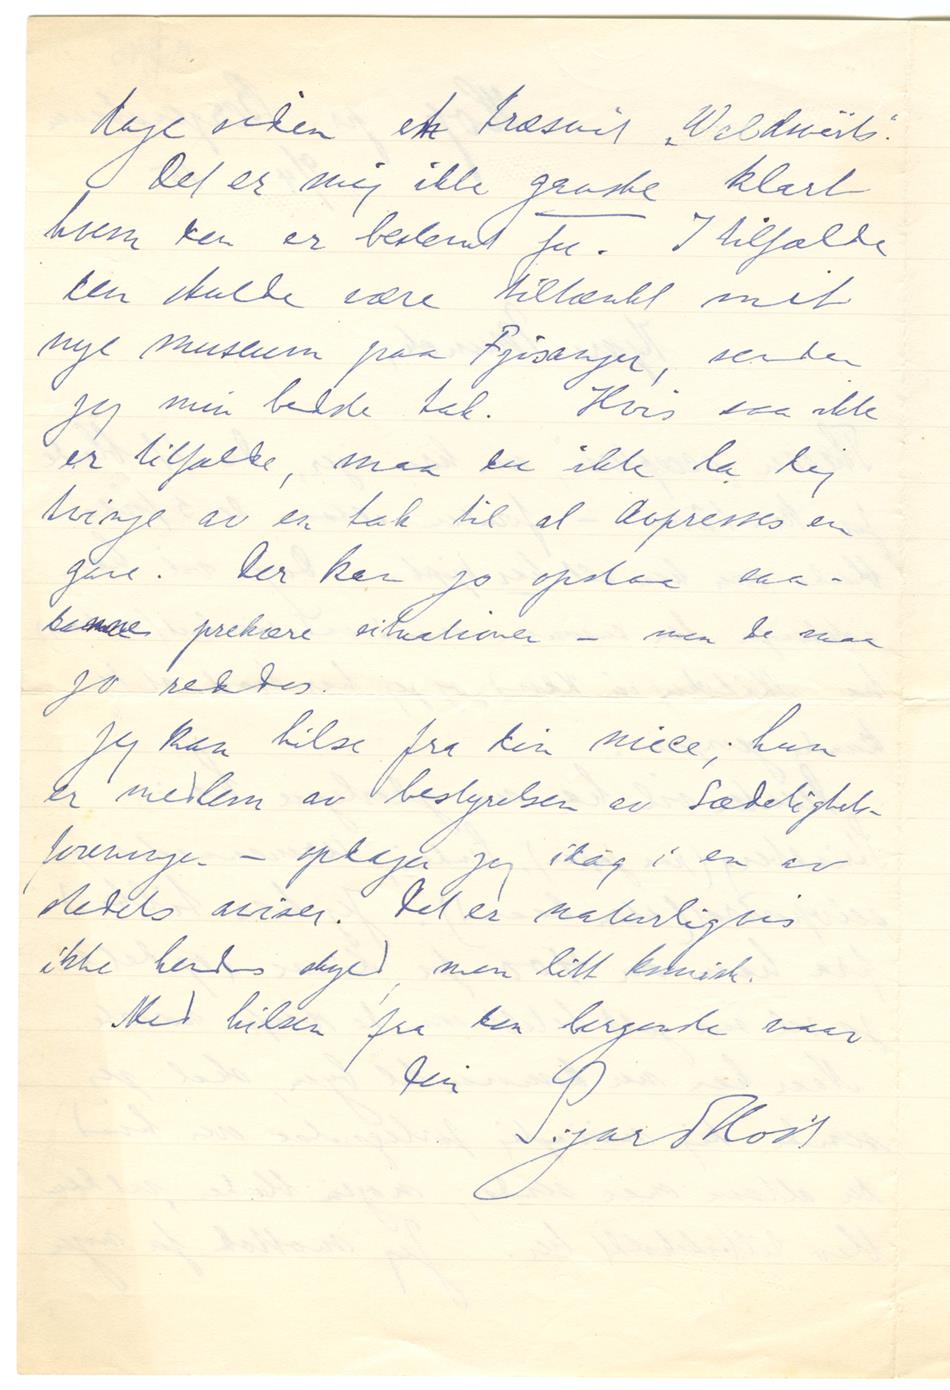 dage siden et træsnit „Waldwärts".
Det er mig ikke ganske klart
hvem den er bestemt for. I tilfælde
den skulde være tiltænkt mit
nye museum paa Fjøsanger, sender
jeg min bedste tak. Hvis saa ikke
er tilfælde, maa du ikke la dig
tvinge av en tak til at avpresses en
gave. Der kan jo opstaa saa-
danne prekære situationer – men de maa
jo reddes.
Jeg kan hilse fra din niece; hun
er medlem av bestyrelsen av Sædeligheds-
foreningen – opdager jeg idag i en av
stedets aviser. Det er naturligvis
ikke hendes skyld, men litt komisk.
Med hilsen fra den bergenske vaar
din
Sigurd Høst